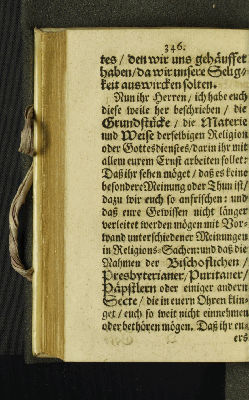 346.
tes / den wir uns gehäuffet
haben / da wir unsere Selig-
keit auswircken solten.
Nun ihr Herren / ich habe euch
diese weile her beschrieben / die
Grundstücke / die Materie
und Weise derselbigen Religion
oder Gottesdienstes / darin ihr mit
allem eurem Ernst arbeiten sollet:
Daß ihr sehen möget / daß es keine
besondere Meinung oder Thun ist /
dazu wir euch so anfrischen: und
daß eure Gewissen nicht länger
verleitet werden mögen mit Vor-
wand unterschiedener Meinungen
in Religions-Sachen: und daß die
Nahmen der Bischoflichen /
Presbyterianer / Puritaner /
Päpstlern oder einiger andern
Secte / die in euern Ohren klin-
get / euch so weit nicht einnehmen
oder bethören mögen. Daß ihr eu-
ers